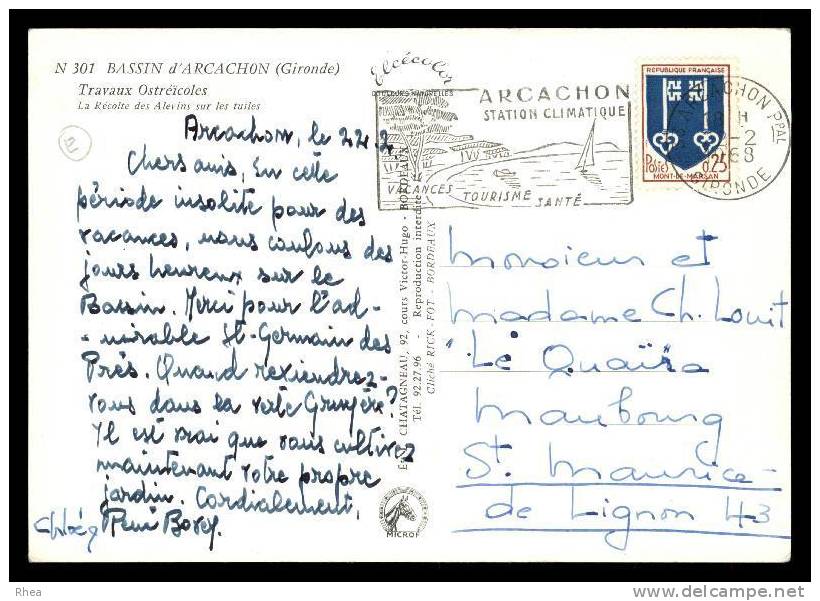 N 301 BASSIN d'ARCACHON (Gironde)
Travaux Ostréïcoles
La Récolte des Alevins sur les tuiles
Elcécolor
COULEURS NATURELLES
ARCACHON
STATION CLIMATIQUE
VACANCES
TOURISME
SANTÉ
ARCACHON PPAL
18 H
2-2
1968
GIRONDE
REPUBLIQUE FRANÇAISE
Postes
0,25
MONT-DE-MARSAN
Arcachon, le 22.2
Chers amis, En cette
période insolite pour des
vacances, nous coulons des
jours heureux sur le
Bassin. Merci pour l'ad-
-mirable St-Germain des
Prés. Quand reviendrez-
vous dans la verte Gruyère?
Il est vrai que vous cultivez
maintenant votre propre
jardin. Cordialement,
René
CHATAGNEAU, 92, cours Victor-Hugo - BORDEAUX
Tél. 92.27.96 - Reproduction interdite
Cliché RICK - FOT - BORDEAUX
Monsieur et
Madame Ch. Louit
"Le
Maubourg
St. Maurice-
de Lignon 43
MICROF
Rhea
www.delcampe.net